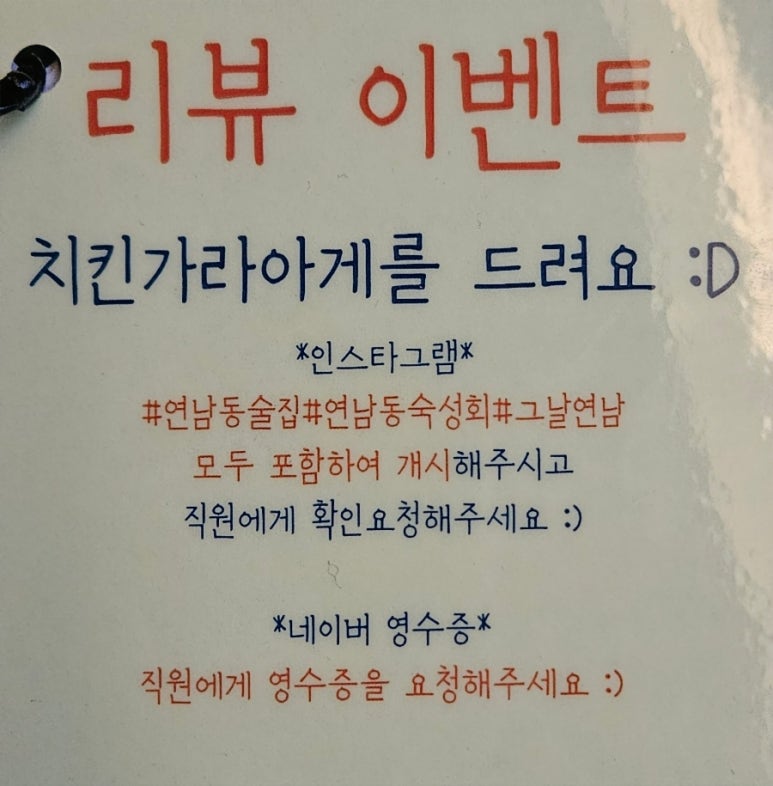 리뷰 이벤트
치킨가라아게를 드려요 :D
*인스타그램*
#연남동술집#연남동숙성회#그날연남
모두 포함하여 개시해주시고
직원에게 확인요청해주세요 :)
*네이버 영수증*
직원에게 영수증을 요청해주세요 :)